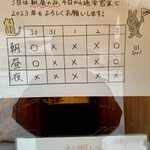 3日は朝昼のみ、4日から通常営業で
2023年もよろしくお願いします!
30 31 1 2 3
朝 ○ × × × ○
昼 ○ × × × ○
夜 × × × × ×